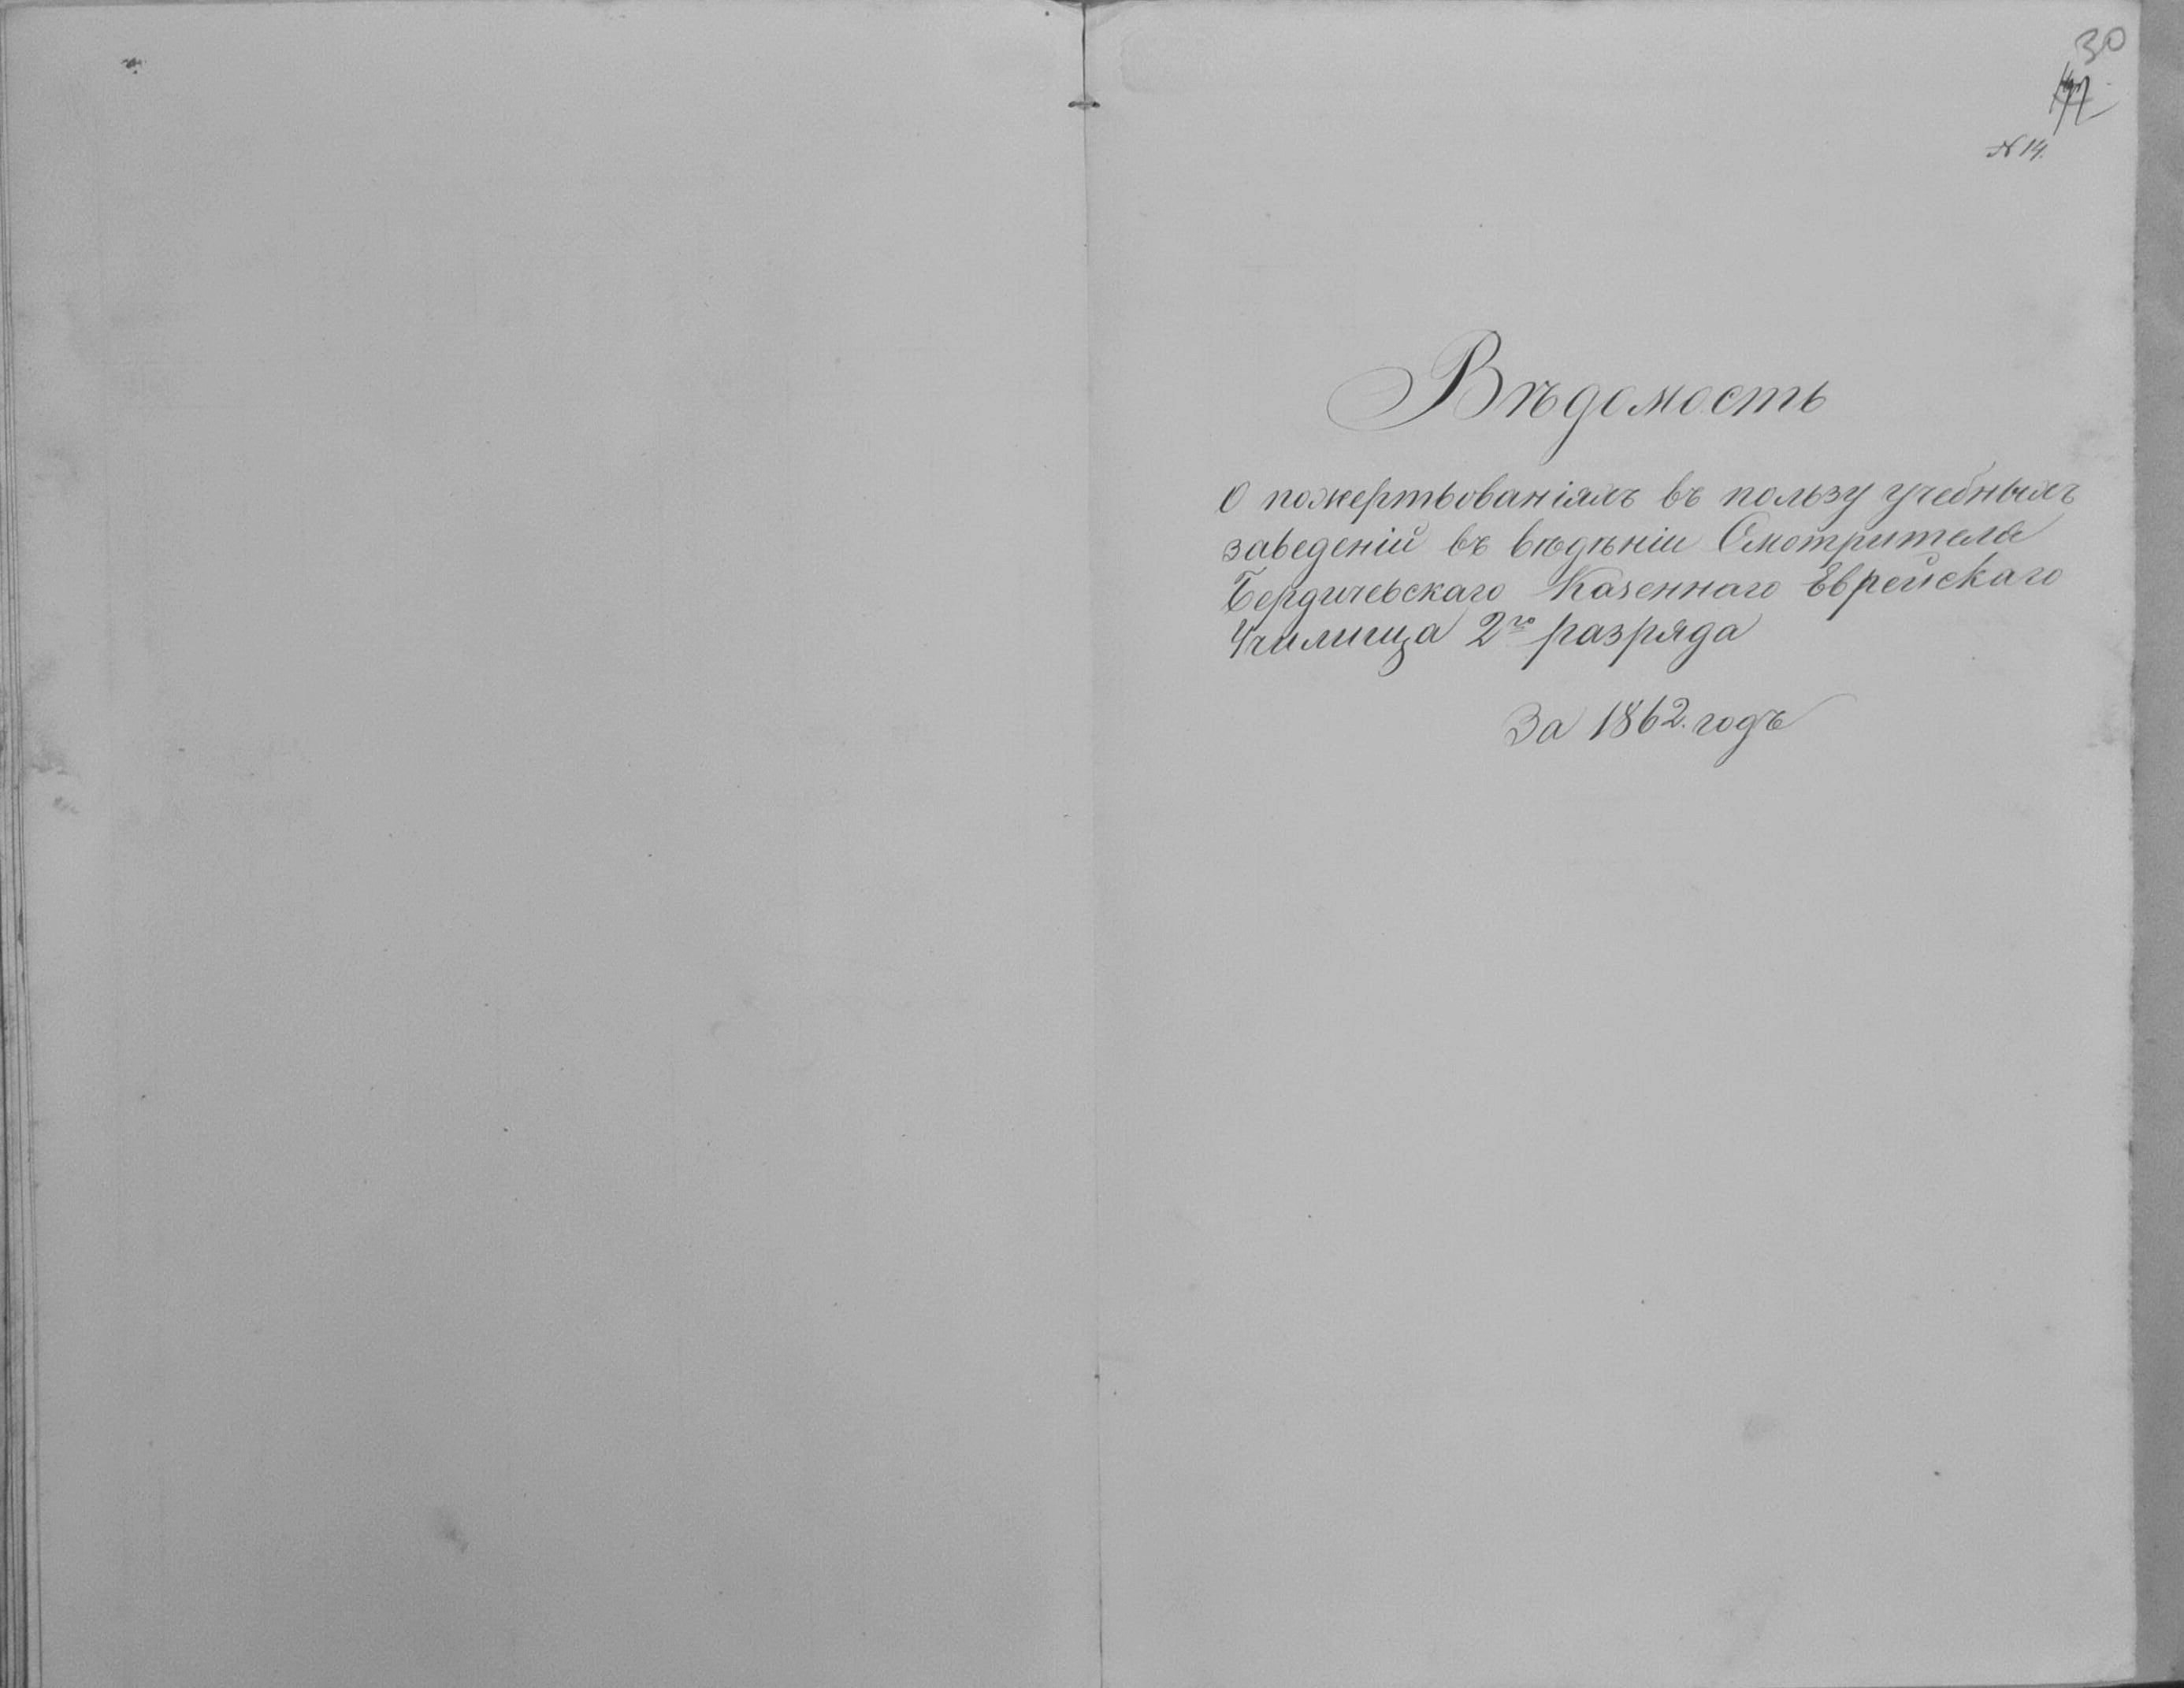 30
N 14.
Вѣдомость
О пожертвованіяхъ въ пользу учебныхъ
заведеній въ вѣдѣніи Смотрителя
Бердичевскаго Казеннаго Еврейскаго
Училища 2го разряда
За 1862. годъ